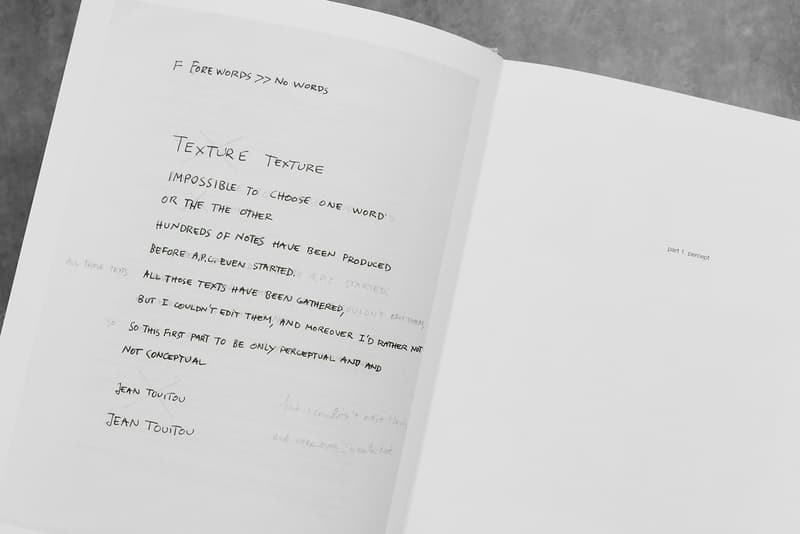 F FOREWORDS >> NO WORDS
TEXTURE TEXTURE
IMPOSSIBLE TO CHOOSE ONE WORD
OR THE THE OTHER
HUNDREDS OF NOTES HAVE BEEN PRODUCED
BEFORE A.P.C. EVEN STARTED.
ALL THOSE TEXTS HAVE BEEN GATHERED,
BUT I COULDN'T EDIT THEM, AND MOREOVER I'D RATHER NOT
SO THIS FIRST PART TO BE ONLY PERCEPTUAL AND AND
NOT CONCEPTUAL
JEAN TOUITOU
JEAN TOUITOU
part 1 percept